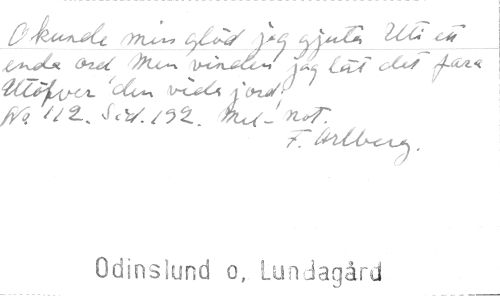 O kunde min glöd jag gjuta Uti ett
enda ord Men vinden jag lät det fara
Utöfver den vida jord!
No 112. Sid. 192. Mel.- not.
F. Arlberg.
Odinslund o, Lundagård